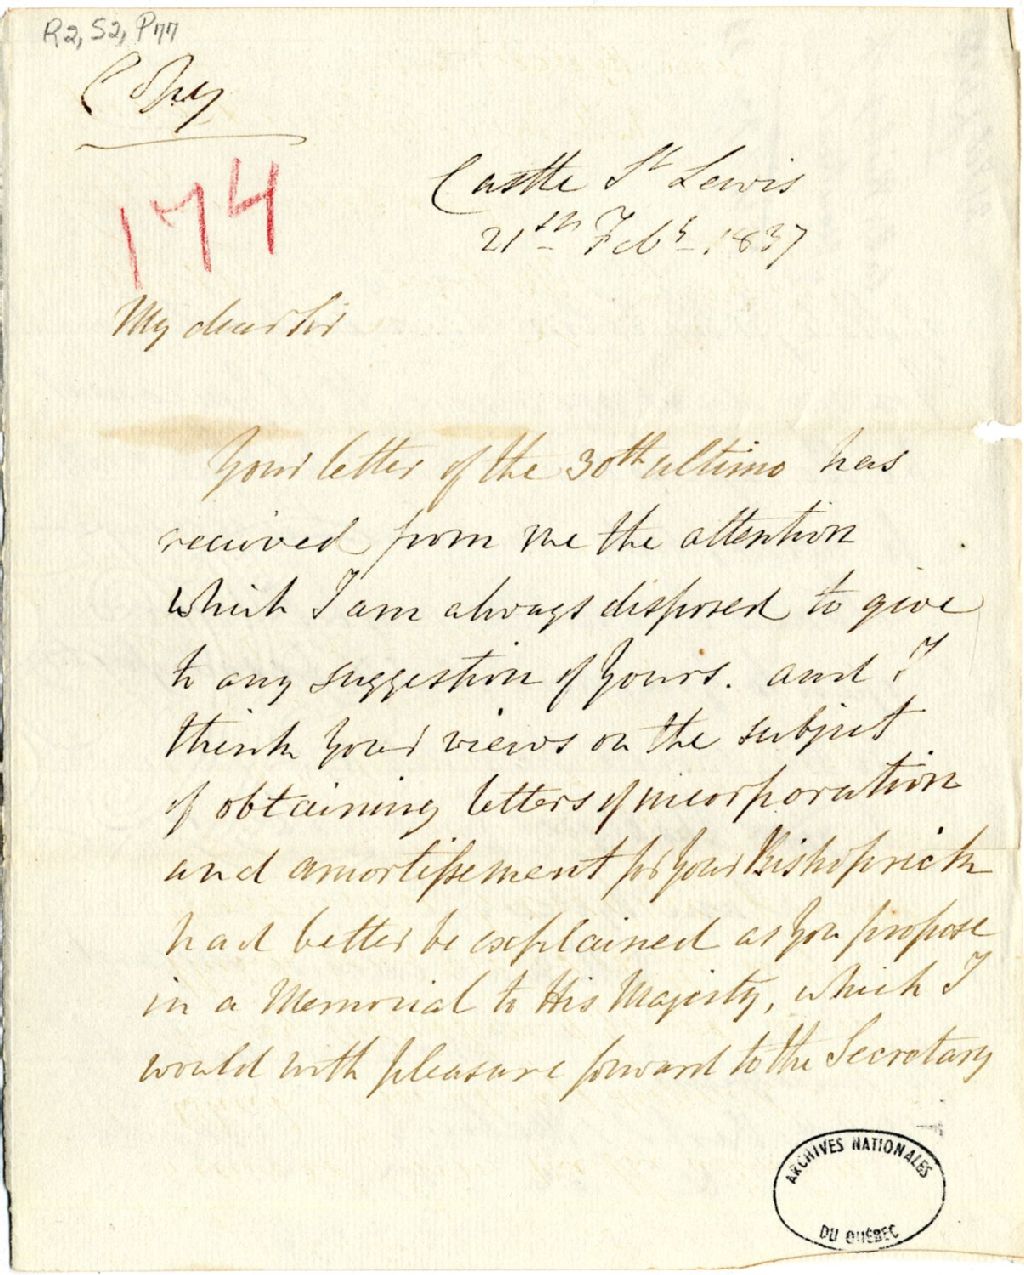 R2, S2, P77
Copy
174
Castle St Lewis
21st Feby 1837
My dear Sir
Your letter of the 30th ultimo has
received from me the attention
which I am always disposed to give
to any suggestion of yours. and I
think your views on the subject
of obtaining letters of incorporation
and amortissement for your Bishoprick
had better be explained as you propose
in a Memorial to His Majesty, which I
would with pleasure forward to the Secretary
ARCHIVES NATIONALES
DU QUÉBEC